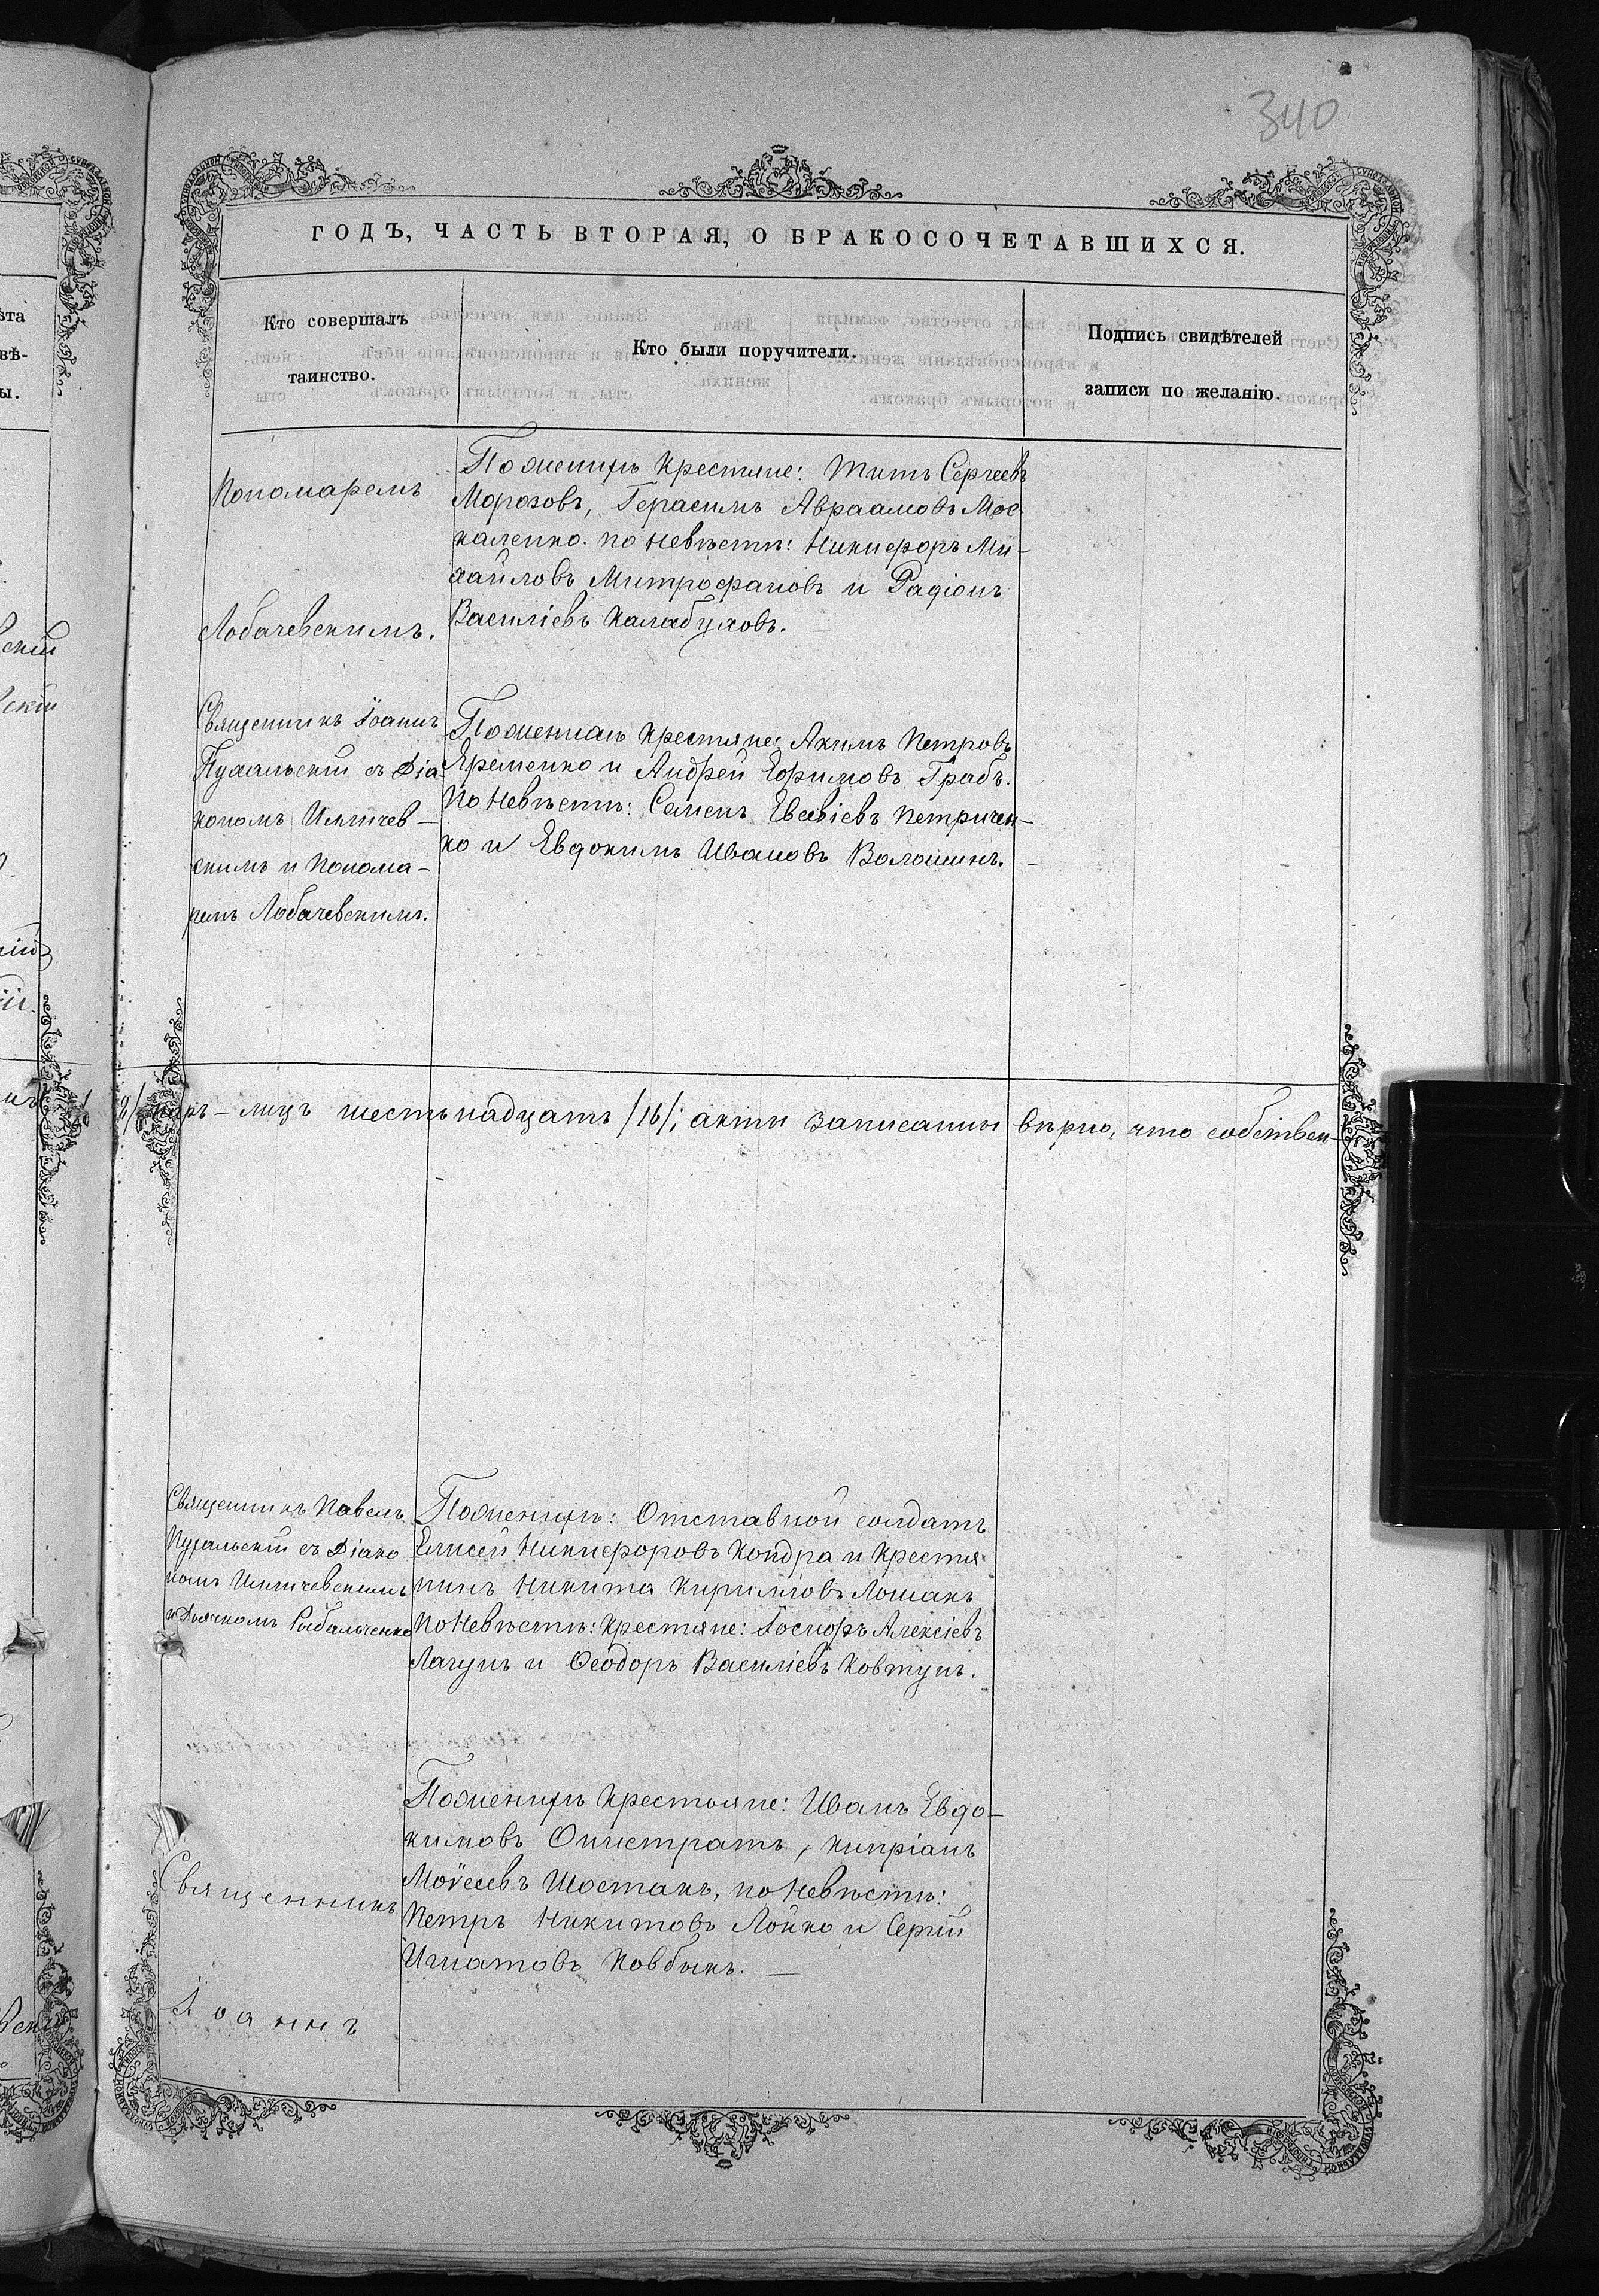 340
ГОДЪ, ЧАСТЬ ВТОРАЯ, О БРАКОСОЧЕТАВШИХСЯ.
Кто совершалъ
таинство.
Кто были поручители.
Подпись свидѣтелей
записи по желанію.
Пономаремъ
Лобачевскимъ.
По женихѣ крестяне: Титъ Сергеевъ
Морозовъ, Герасимъ Авраамовъ Мос
каленко. по невѣстѣ: Никифоръ Ми-
хайловъ Митрофановъ и Радіонъ
Василіевъ Калабуховъ.
Священникъ Іоаннъ
Пухальскій съ Діа
кономъ Илличев-
скимъ и Понома-
ремъ Лобачевскимъ.
По женихѣ крестяне: Акимъ Петровъ
Яременко и Андрей Ефимовъ Грабъ.
По невѣстѣ: Семенъ Евсевіевъ Петричен-
ко и Евдокимъ Ивановъ Волошинъ.
8/ паръ - лицъ шестьнадцать /16/; акты записанны вѣрно, что собствен-
Священникъ Павелъ
Пухальскій съ Діако
номъ Илличевскимъ
и Дьячкомъ Рыбальченко
По женихѣ: Отставной солдатъ
Елисей Никифоровъ Кондра и крестя
нинъ Никита Кирилловъ Лошакъ
По невѣстѣ: крестяне: Іосифъ Алексіевъ
Лагунъ и Ѳеодоръ Василіевъ Ковтунъ.
Священникъ
Іоаннъ
По женихѣ крестьяне: Иванъ Евдо-
кимовъ Онистратъ, Кипріанъ
Моѵсеевъ Шостакъ, по невѣстѣ:
Петръ Никитовъ Лойко и Сергій
Игнатовъ Ковбыкъ.